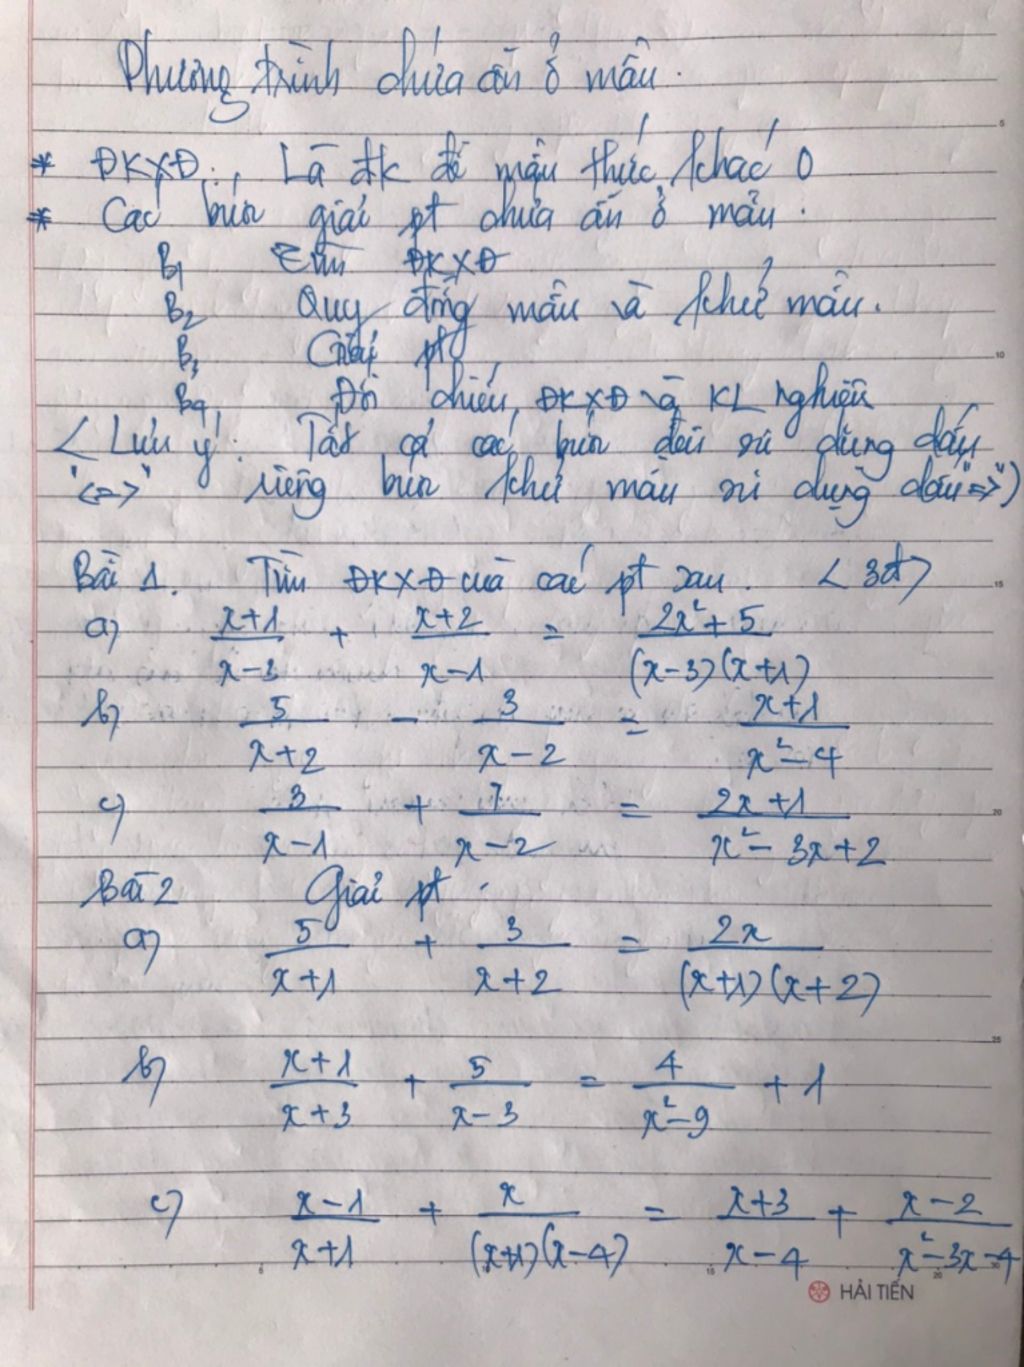 Phương trình chứa ẩn ở mẫu.
* ĐKXĐ: Là đk để mẫu thức khác 0
* Các bước giải pt chứa ẩn ở mẫu.
B1 Tìm ĐKXĐ
B2 Quy đồng mẫu và khử mẫu.
B3 Giải pt
B4 Đối chiếu ĐKXĐ và KL nghiệm
(Lưu ý: Tất cả các bước đều sử dùng dấu
"<=>" riêng bước khử mẫu sử dụng dấu "=>")
Bài 1. Tìm ĐKXĐ của các pt sau. (3đ)
a) (x+1)/(x-3) + (x+2)/(x-1) = (2x²+5)/((x-3)(x+1))
b) 5/(x+2) - 3/(x-2) = (x+1)/(x²-4)
c) 3/(x-1) + 7/(x-2) = (2x+1)/(x²-3x+2)
Bài 2 Giải pt.
a) 5/(x+1) + 3/(x+2) = 2x/((x+1)(x+2))
b) (x+1)/(x+3) + 5/(x-3) = 4/(x²-9) + 1
c) (x-1)/(x+1) + x/((x+1)(x-4)) = (x+3)/(x-4) + (x-2)/(x²-3x-4)
HẢI TIẾN